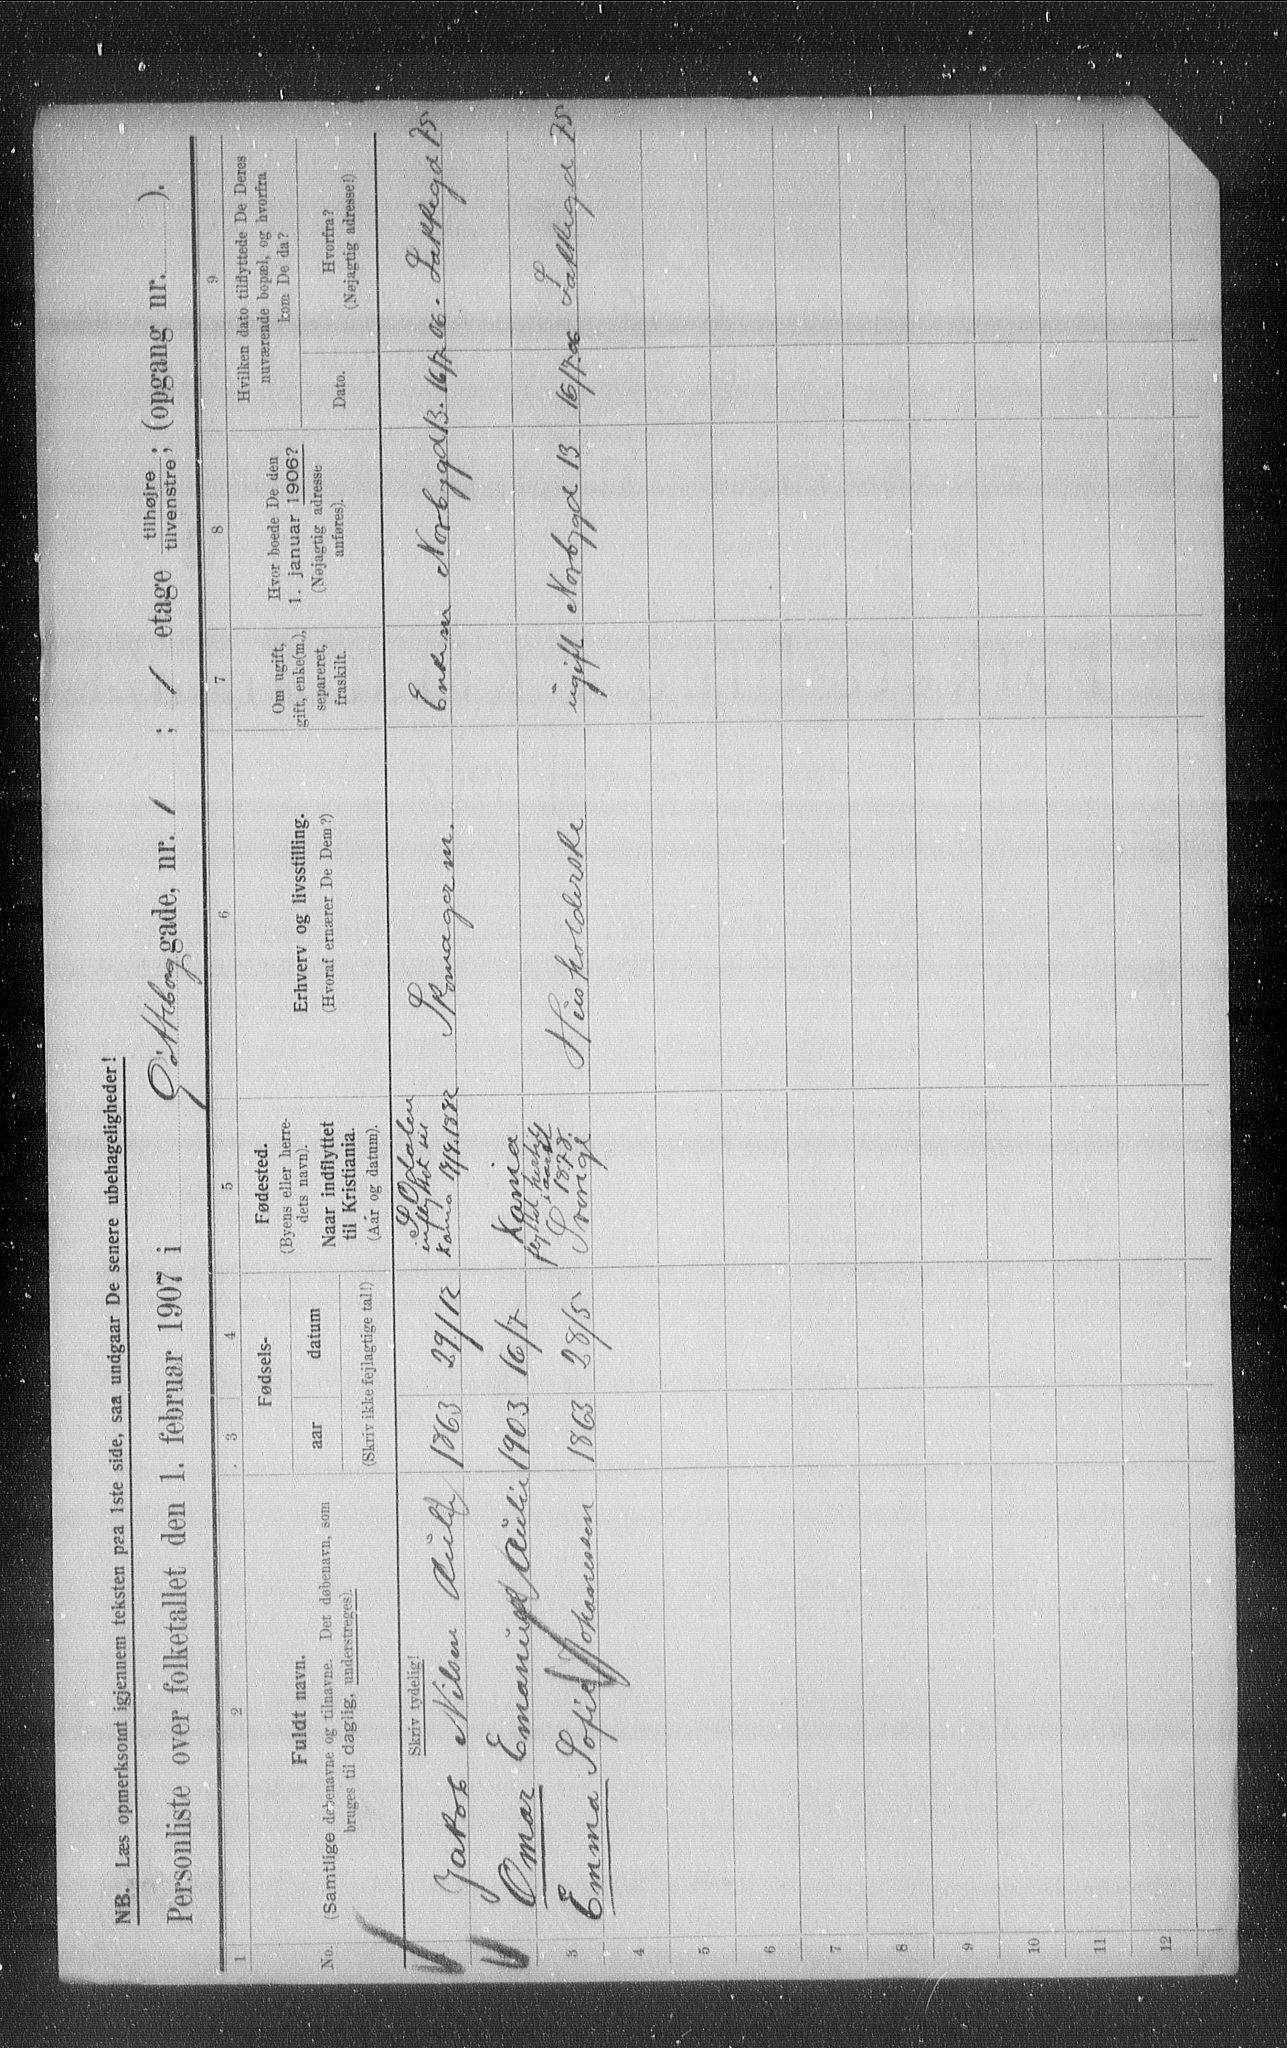 NB. Læs opmerksomt igjennem teksten paa 1ste side, saa undgaar De senere ubehageligheder!
Personliste over folketallet den 1. februar 1907 i Gøtteborg gade, nr. 1 ; 1 etage tilhøjre tilvenstre; (opgang nr. ).
1 2 3 4 5 6 7 8 9
No.
Fuldt navn.
(Samtlige døbenavne og tilnavne. Det døbenavn, som
bruges til daglig, understreges).
Skriv tydelig!
Fødsels-
aar datum
(Skriv ikke fejlagtige tal!)
Fødested.
(Byens eller herre-
dets navn).
Naar indflyttet
til Kristiania.
(Aar og datum).
Erhverv og livsstilling.
(Hvoraf ernærer De Dem?)
Om ugift,
gift, enke(m.),
separeret,
fraskilt.
Hvor boede De den
1. januar 1906?
(Nøjagtig adresse
anføres).
Hvilken dato tilflyttede De Deres
nuværende bopæl, og hvorfra
kom De da?
Dato.
Hvorfra?
(Nøjagtig adresse!)
Jakob Nilsen 1863 29/12 S Odalen Skomagerm. Enkem Norbygd 13. 16/7-06. Lakkegd 75
Omar 1903 16/7 Kania
3 Emma Sofie Johanessen 1863 28/5 1878. Sverige Husholderske ugift Norbygd 13 16/7-06 Lakkegd 75
4
5
6
7
8
9
10
11
12